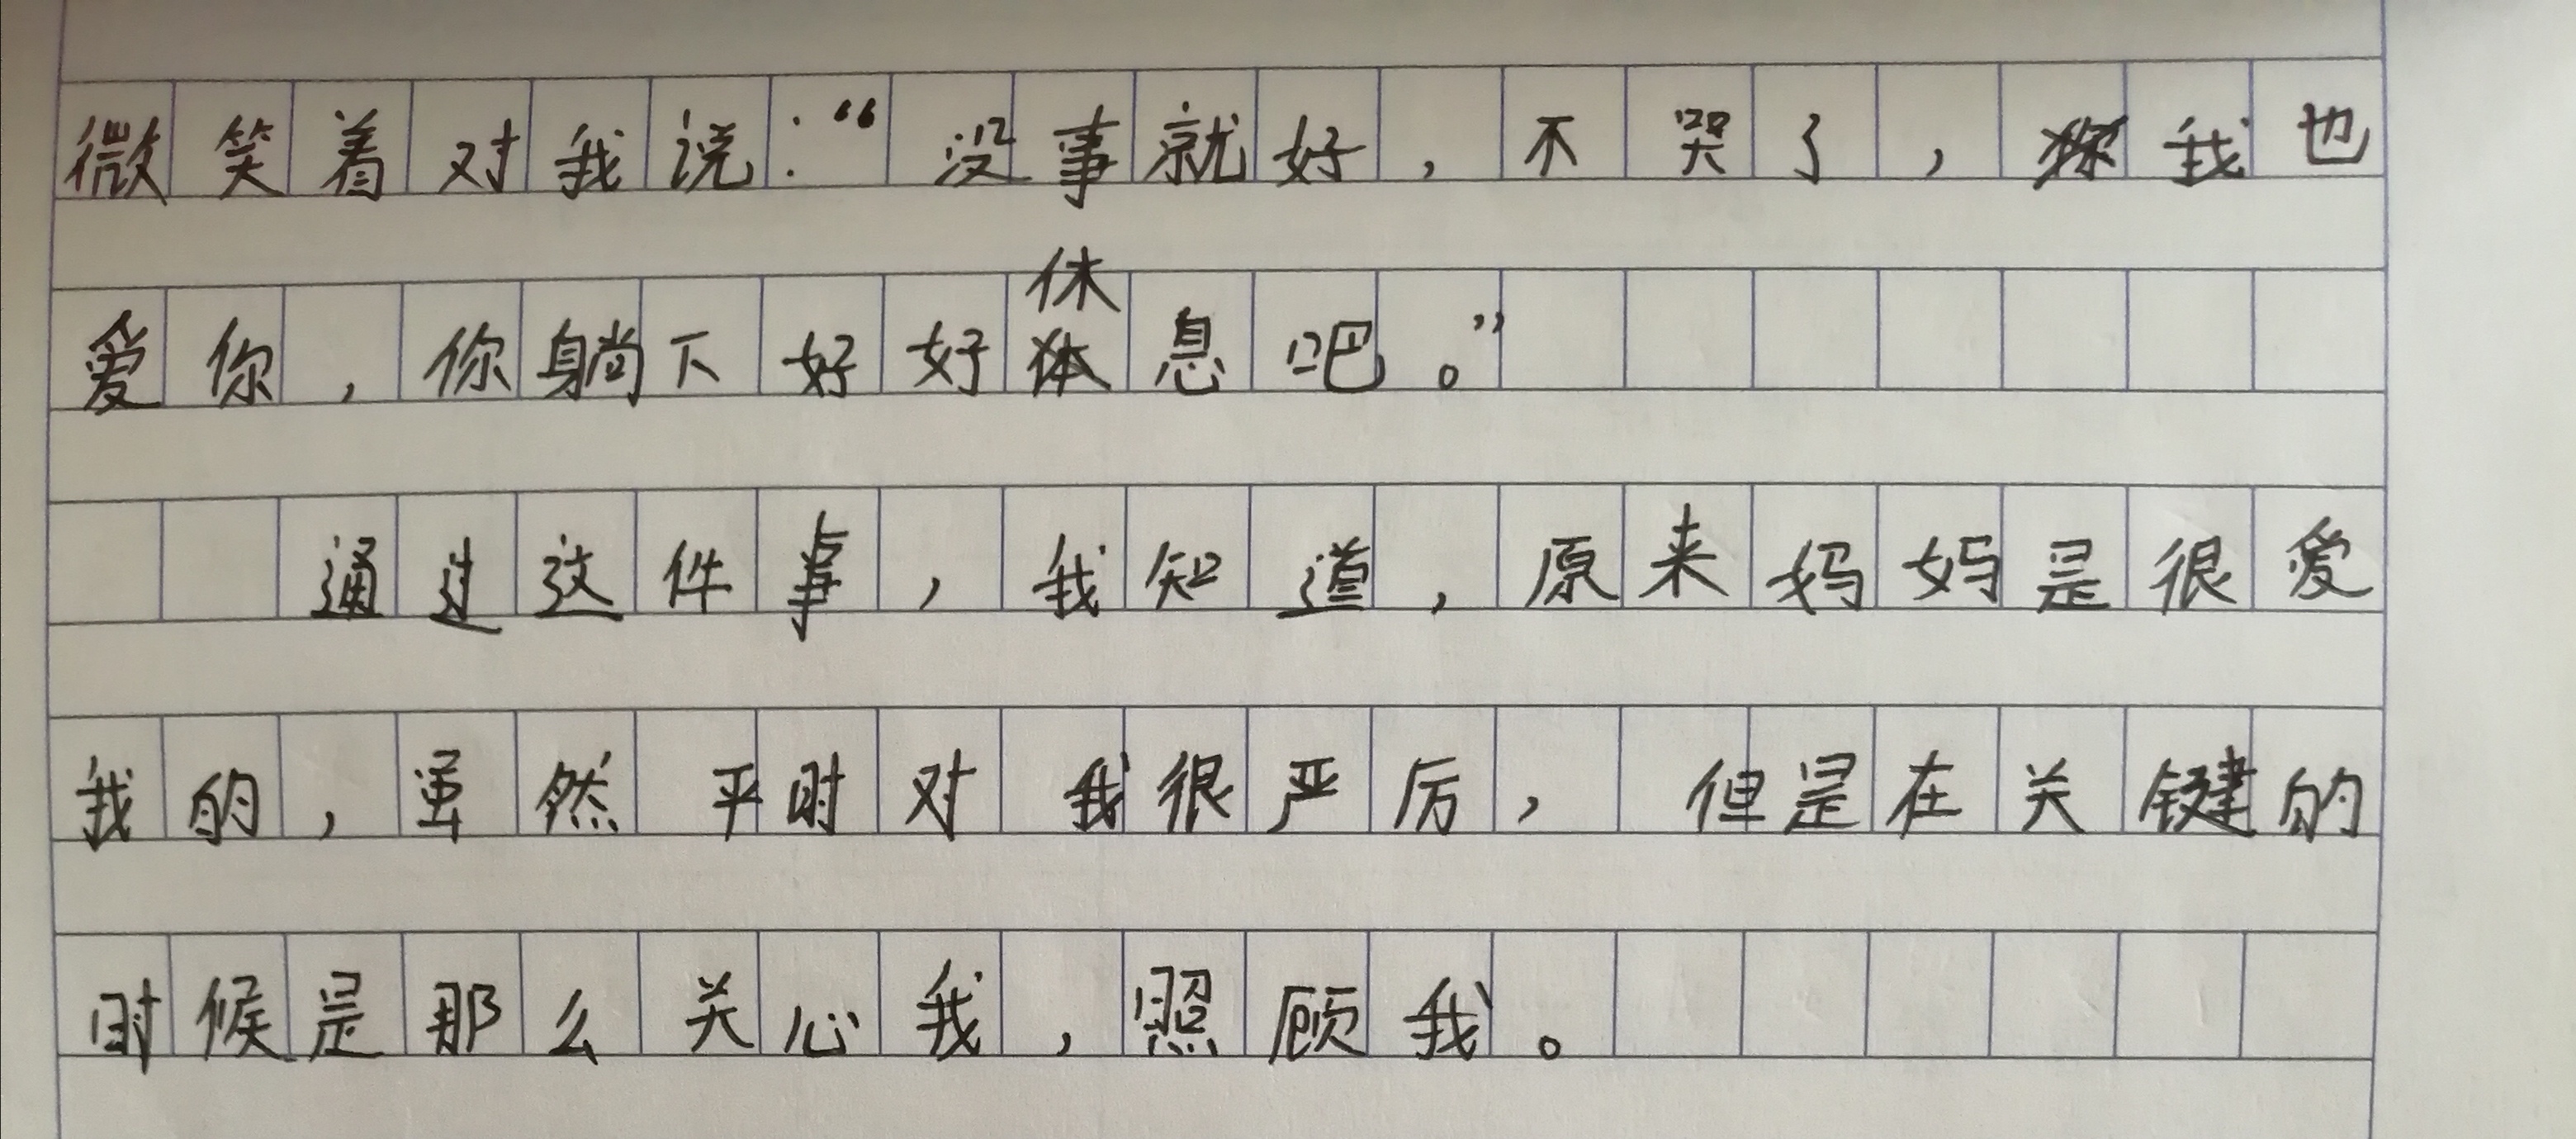 微笑着对我说：“没事就好，不哭了，我也
爱你，你躺下好好休息吧。”
通过这件事，我知道，原来妈妈是很爱
我的，虽然平时对我很严厉，但是在关键的
时候是那么关心我，照顾我。